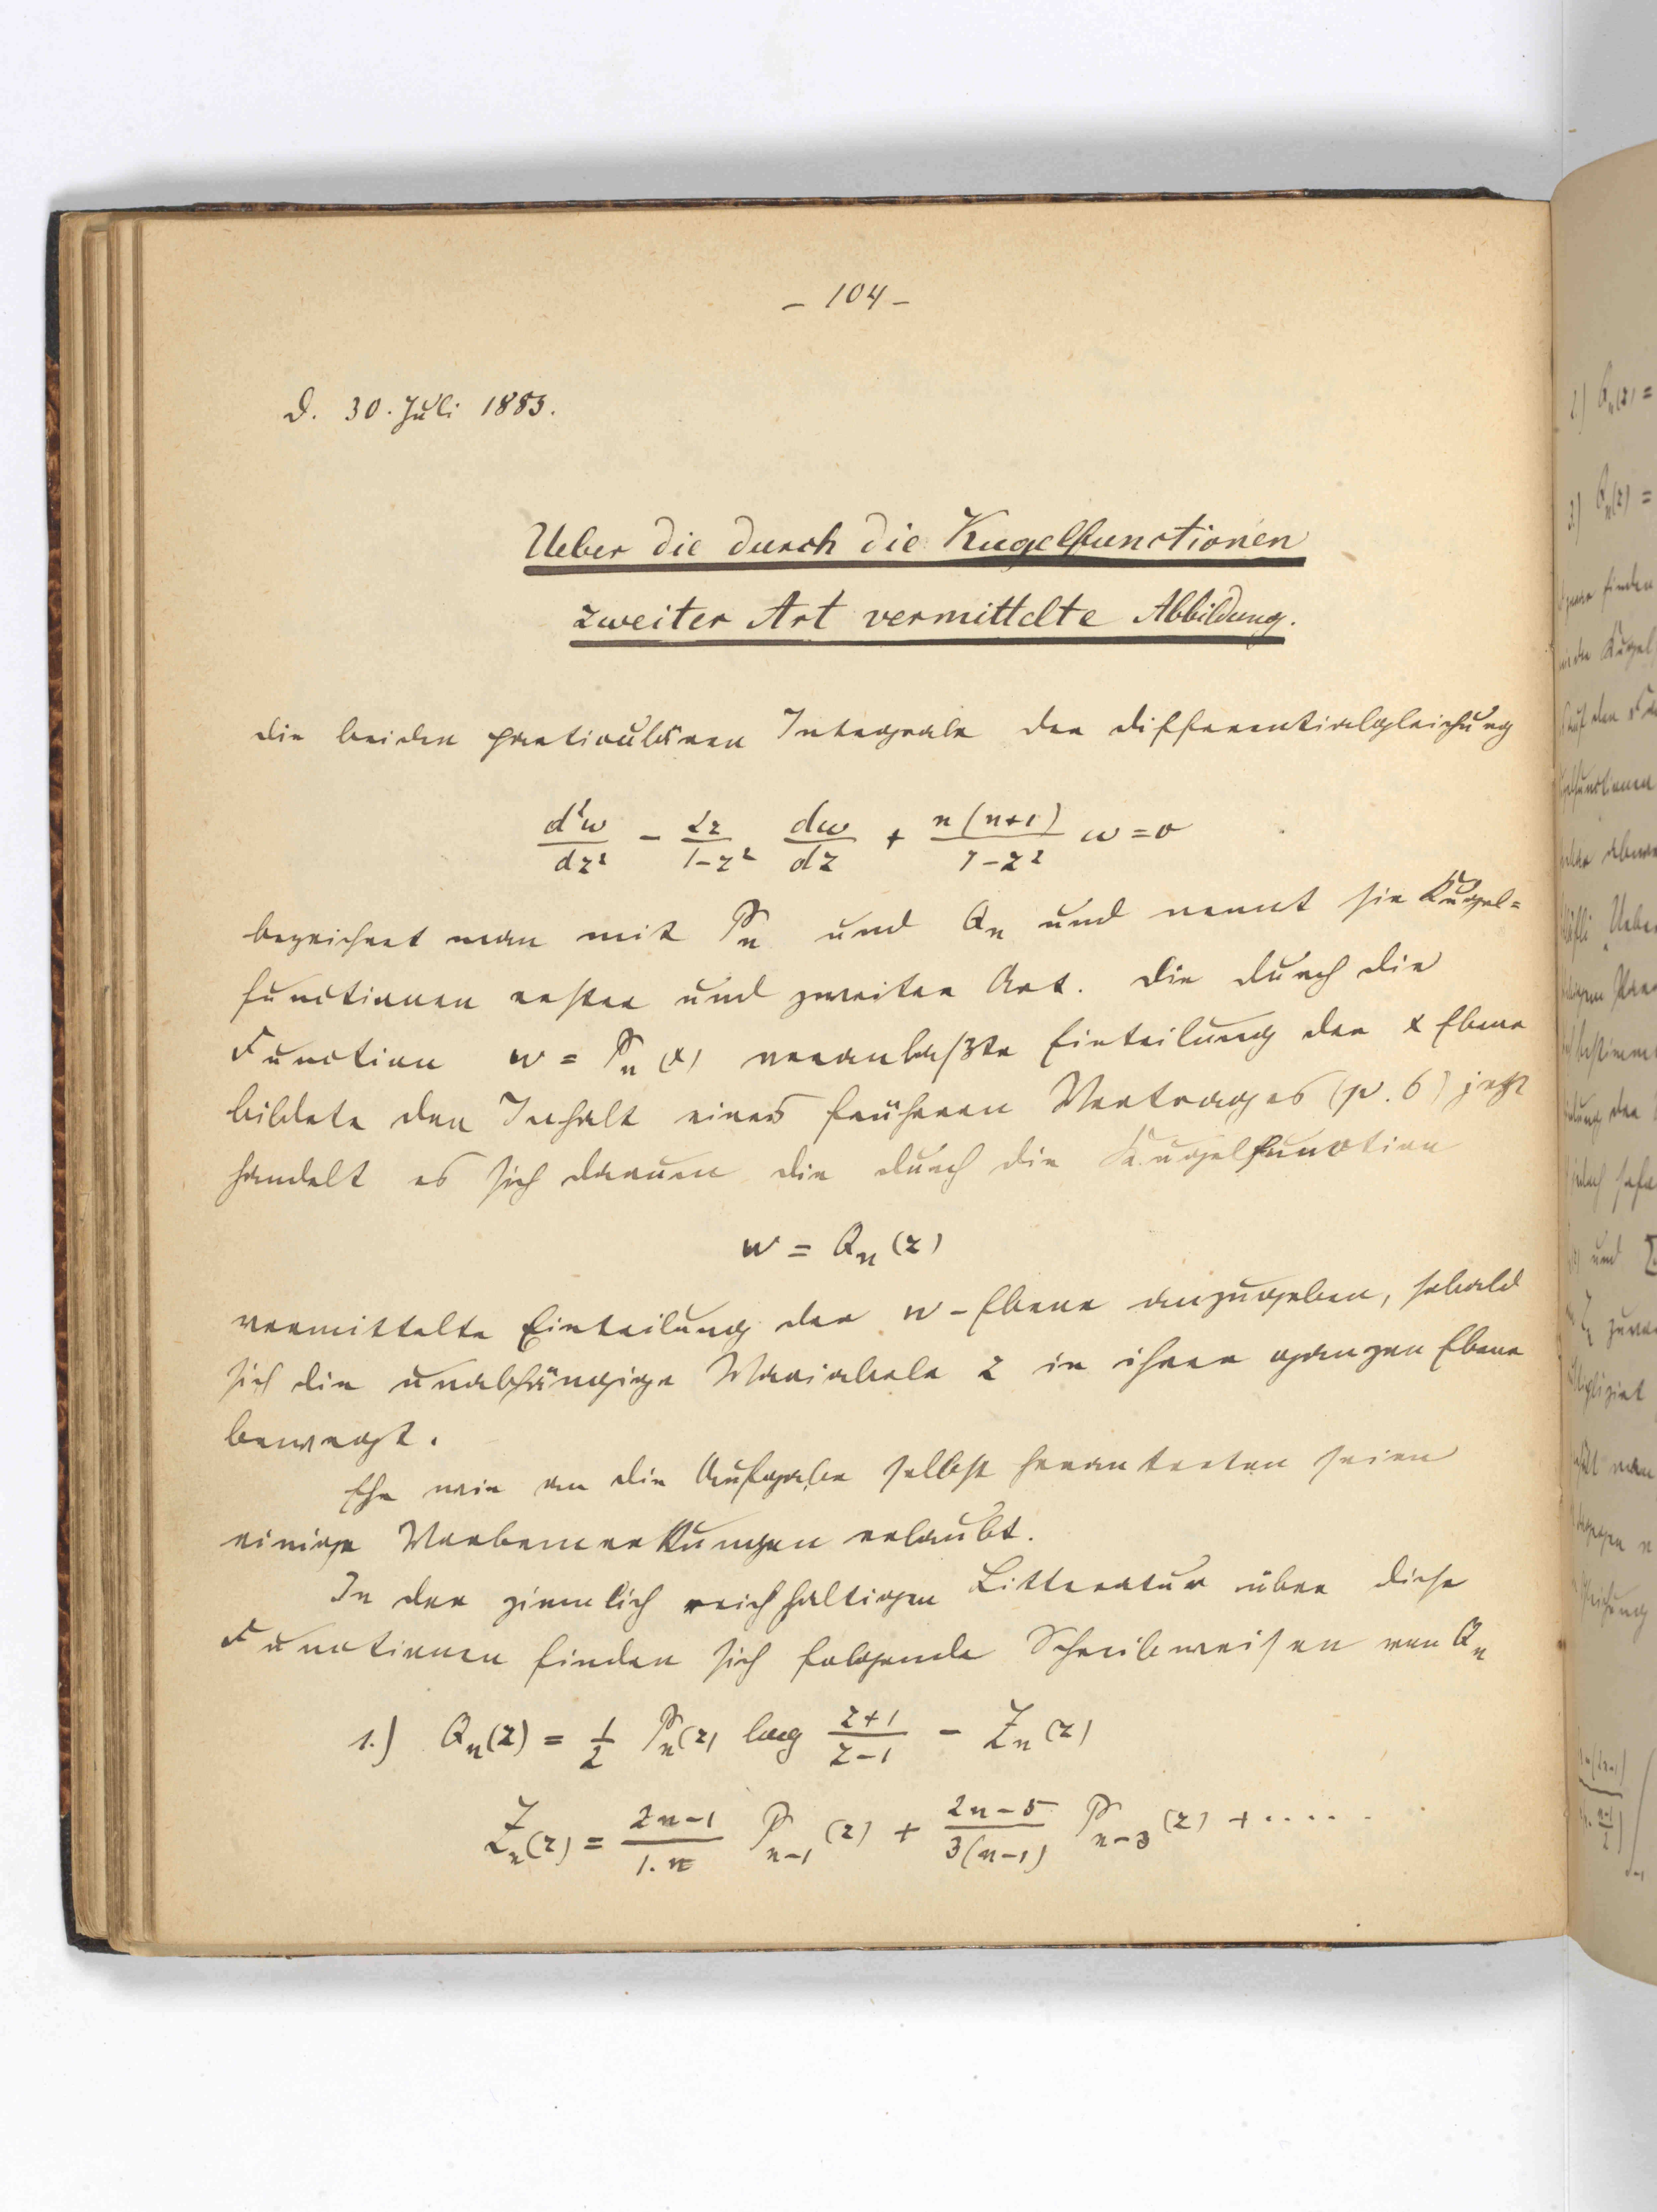 - 104 -
D. 30. Juli 1883.
Ueber die durch die Kugelfunctionen
zweiter Art vermittelte Abbildung.
Die beiden particulären Integrale der Differentialgleichung
d²w/dz² - 2z/1-z² dw/dz + n(n+1)/1-z² w = 0
bezeichnet man mit Pn und Qn und nennt sie Kugel=
functionen erster und zweiter Art. Die durch die
Function w = Pn(x) veranlaßte Einteilung der x Ebene
bildete den Inhalt eines früheren Vortrages (p. 6) jetzt
handelt es sich darum die durch die Kugelfunction
w = Qn(z)
vermittelte Einteilung der w-Ebene anzugeben, sobald
sich die unabhängige Variabele z in ihrer ganzen Ebene
bewegt.
Ehe wir an die Aufgabe selbst herantreten seien
einige Vorbemerkungen erlaubt.
In der ziemlich reichhaltigen Litteratur über diese
Functionen finden sich folgende Schreibweisen von Qn
1.) Qn(z) = 1/2 Pn(z) log z+1/z-1 - Zn(z)
Zn(z) = 2n-1/1.n Pn-1(z) + 2n-5/3(n-1) Pn-3(z) + .....
2.) Qn(z) =
3.) Qn(z) =
finden